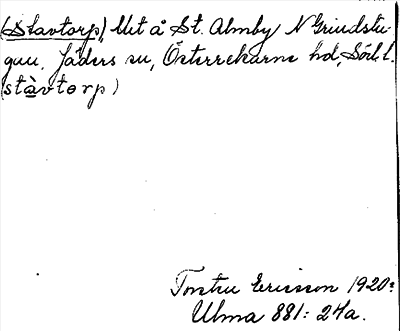 (Stavtorp,) Ut å St. Almby N Grindstu-
gun. Jäders sn, Österrekarne hd, Söd. l.
(stàvtorp)
Torsten Ericsson 1920:
Ulma 881: 24a.